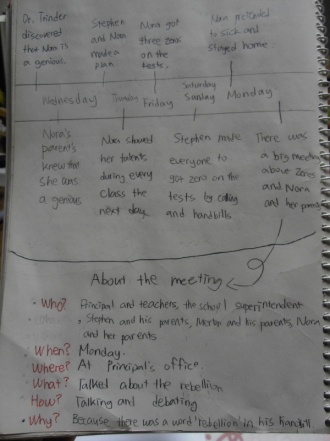 Dr. Trinder
discovered
that Nora is
a genious.
Stephen
and Nora
made a
plan
Nora got
three zeros
on the
tests.
Nora pretended
to sick and
stayed home
Wednesday
Thursday
Friday
Saturday
Sunday
Monday
Nora's
parents
knew that
she was
a genious
Nora showed
her talents
during every
class the
next day
Stephen made
everyone to
get zero on the
tests by calling
and handbills
There was
a big meeting
about zeros
and Nora
and her parents
About the meeting
• Who? Principal and teachers, the school superintendent
, Stephen and his parents, Merton and his parents, Nora
and her parents
• When? Monday.
• Where? At Principal's office
• What? Talked about the rebellion
• How? Talking and debating
• Why? Because there was a word 'rebellion' in his handbill.